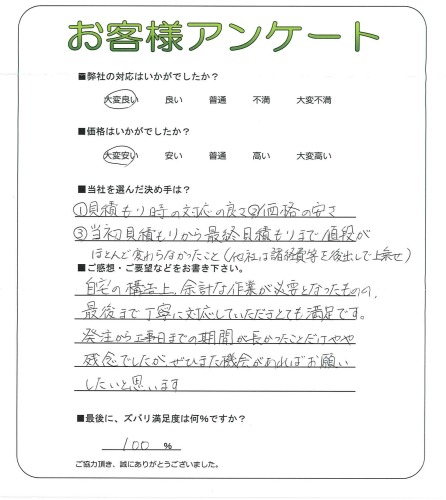 お客様アンケート
■弊社の対応はいかがでしたか？
大変良い 良い 普通 不満 大変不満
■価格はいかがでしたか？
大変安い 安い 普通 高い 大変高い
■当社を選んだ決め手は？
①見積もり時の対応の良さ②価格の安さ
③当初見積もりから最終見積もりまで値段が
ほとんど変わらなかったこと(他社は諸経費等を後出しで上乗せ)
■ご感想・ご要望などをお書き下さい。
自宅の構造上、余計な作業が必要となったものの、
最後まで丁寧に対応していただきとても満足です。
発注から工事日までの期間が長かったことだけやや
残念でしたが、ぜひまた機会があればお願い
したいと思います
■最後に、ズバリ満足度は何%ですか？
100 %
ご協力頂き、誠にありがとうございました。